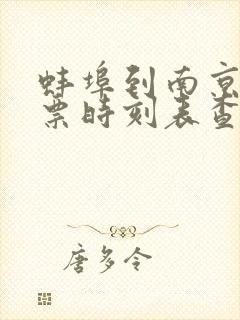 蚌埠到南京
票时刻表查
唐多令